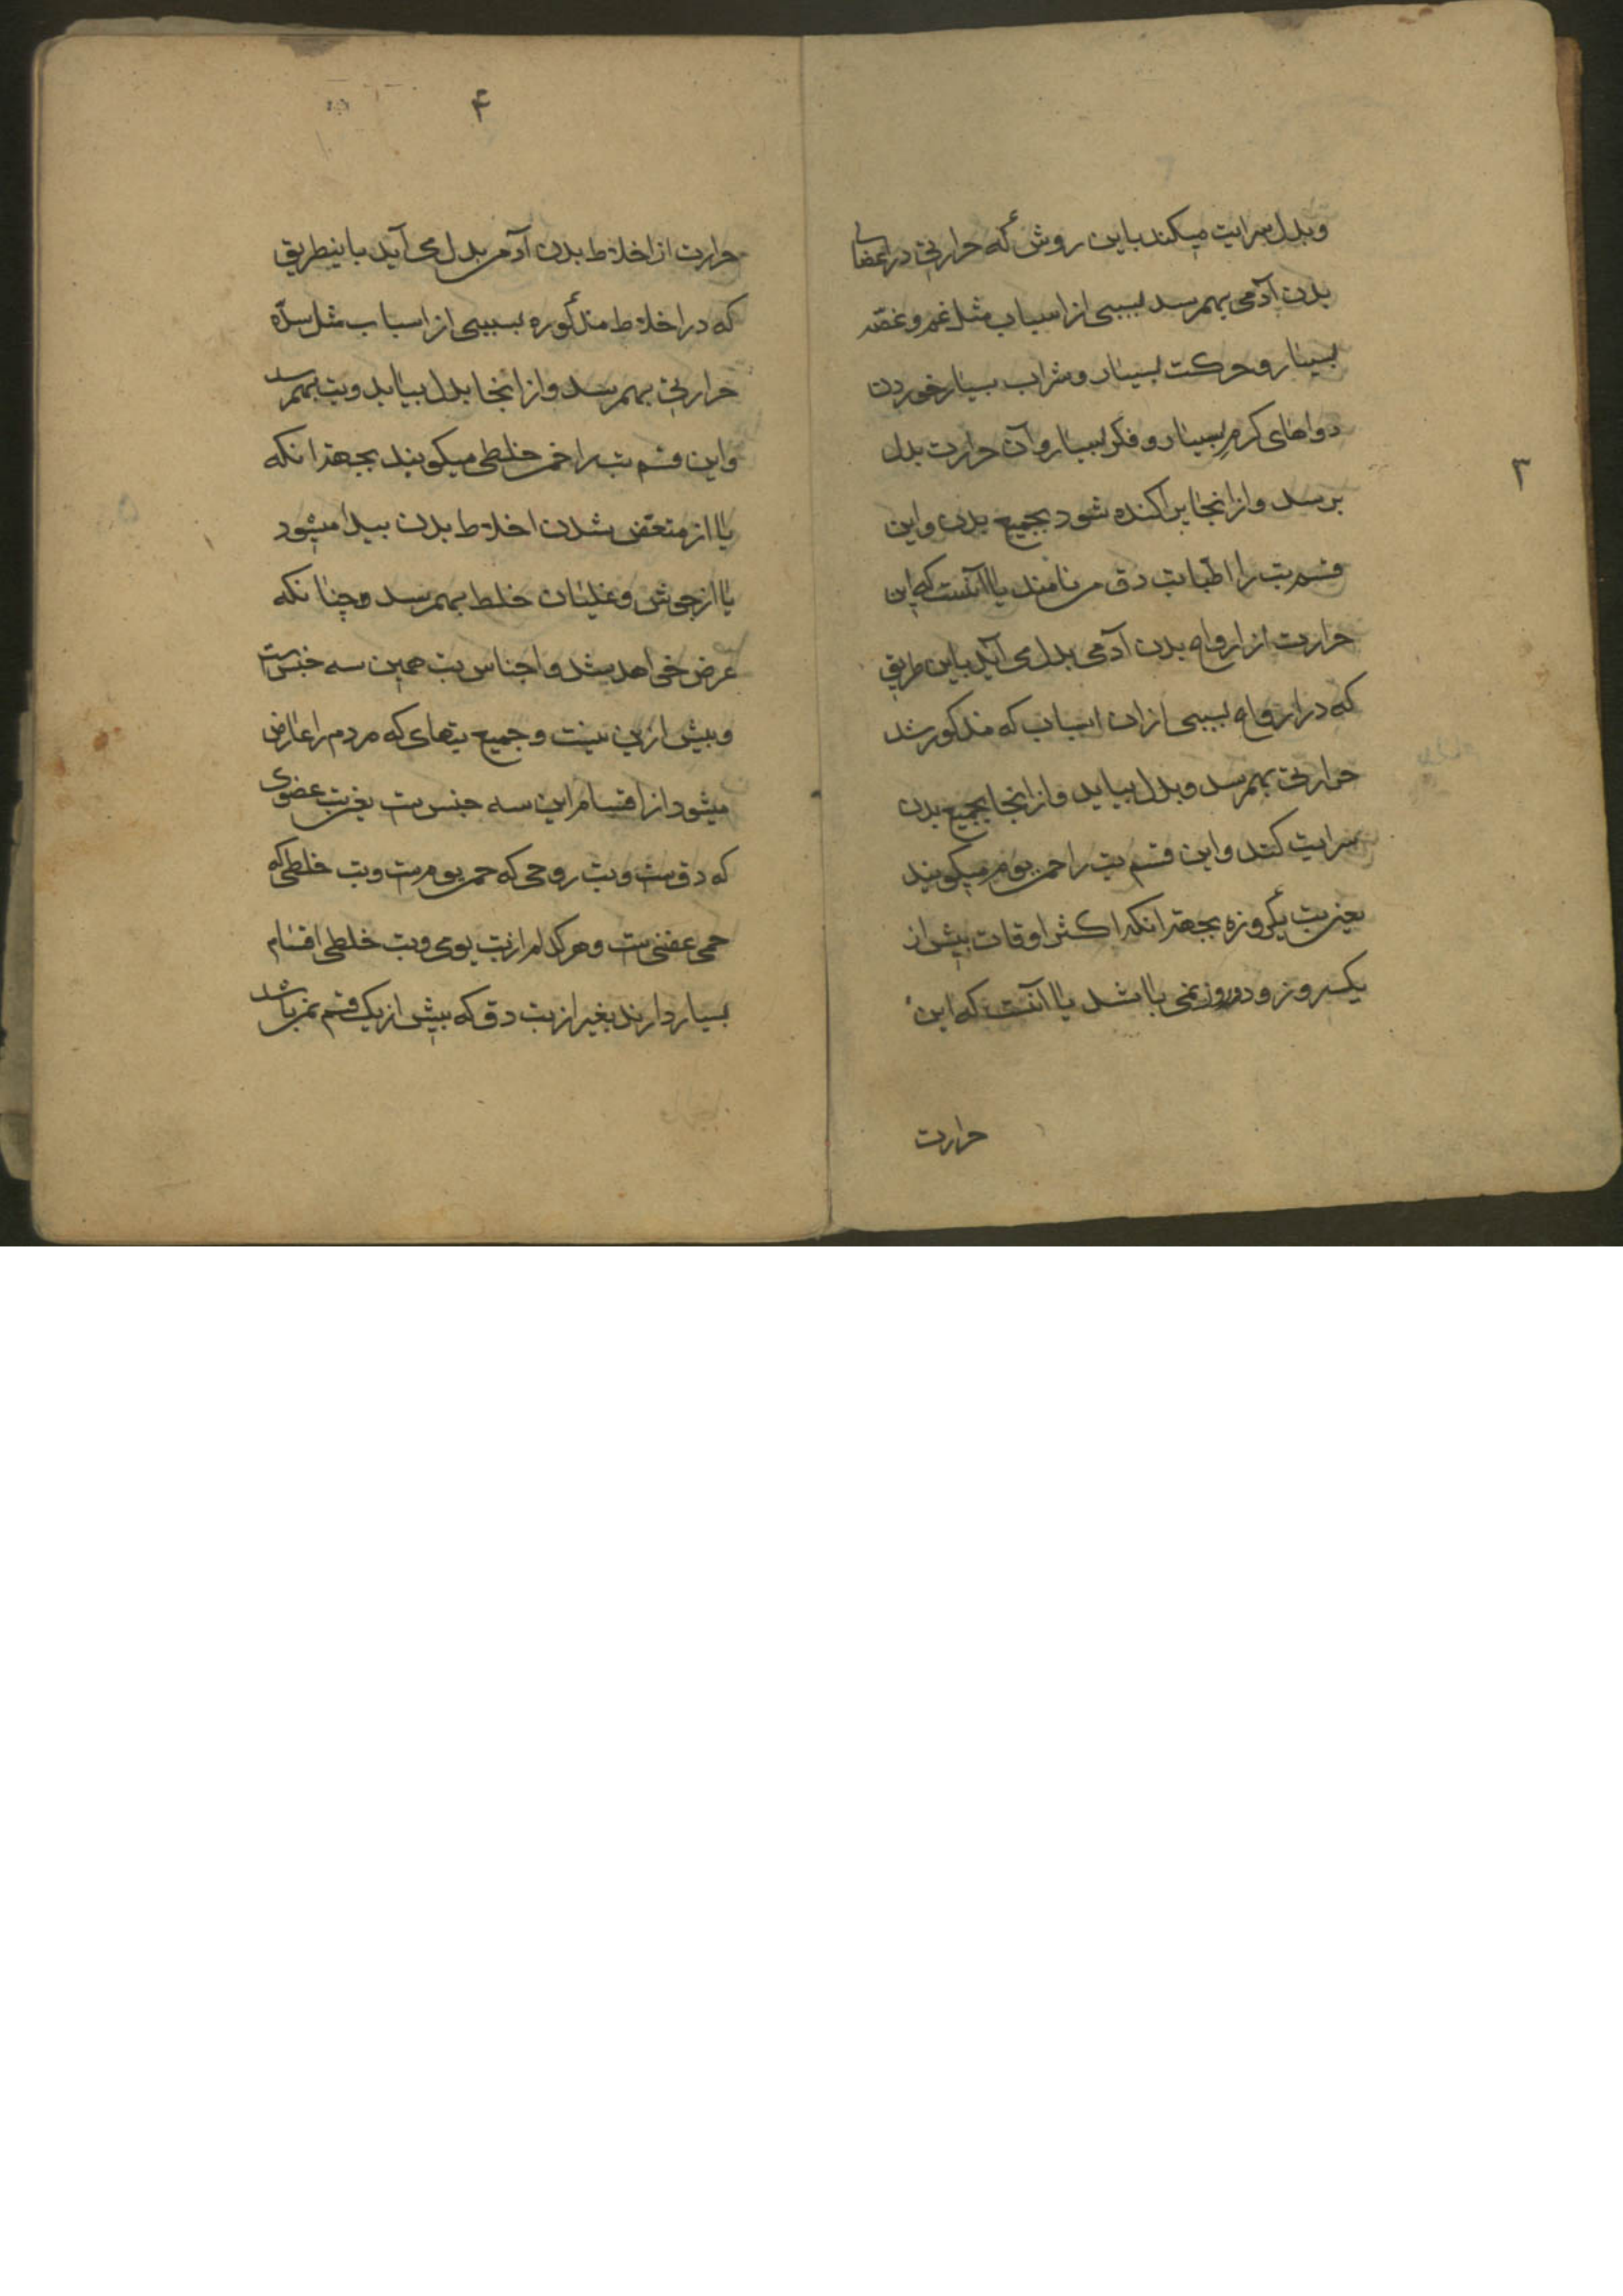 ۳
وبدل سرایت میکند باین روش که حرارتی در اعضای
بدن آدمی بهم رسد بسببی از اسباب مثل غم و غصّه
بسیار و حرکت بسیار و شراب بسیار خوردن
دواهای کرم بسیار و فکر بسیار و آن حرارت بدل
برسد و از انجا پراکنده شود بجمیع بدن و این
قسم تب را اطبا تب دق می نامند یا آنست که این
حرارت از ارواح بدن آدمی بدل می آید باین طریق
که در ارواح بسببی از ان اسباب که مذکور شد
حرارتی بهم رسد و بدل بیاید و از انجا بجمیع بدن
سرایت کند و این قسم تب را حمی یوم میکویند
یعنی تب یکروزه بجهة انکه اکثر اوقات بیش از
یکروز و دوروز نمی باشد یا آنست که این
حرارت
۴
حرارت از اخلاط بدن آدمی بدل می آید باینطریق
که در اخلاط مذکوره بسببی از اسباب مثل سدّه
حرارتی بهم رسد و از انجا بدل بیاید و تب بهمرسد
و این قسم تب را حمی خلطی میکویند بجهة انکه
یا از متعفّن شدن اخلاط بدن پیدا میشود
یا از جوش و غلیان خلط بهم رسد و چنانکه
عرض خواهد شد و اجناس تب همین سه جنس است
و بیش ازین نیست و جمیع تبهای که مردم را عارض
میشود از اقسام این سه جنس ست یعنی تب عضوی
که دق ست و تب روحی که حمی یوم ست و تب خلطی که
حمی عفنی ست و هر کدام از تب یومی و تب خلطی اقسام
بسیار دارند بغیر از تب دق که بیش از یک قسم نمی باشد